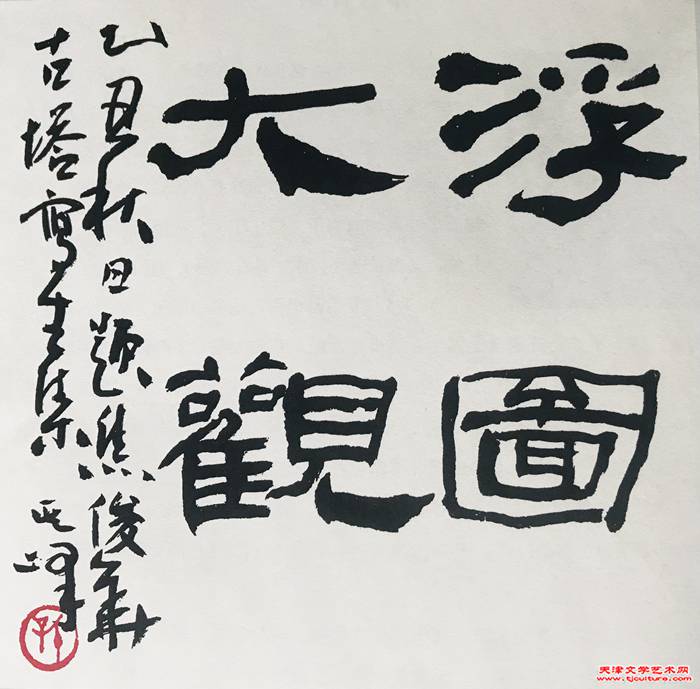 浮圖
大觀
乙丑秋日題焦俊華
古塔寫生集 其峰
天津文学艺术网
www.tjculture.com